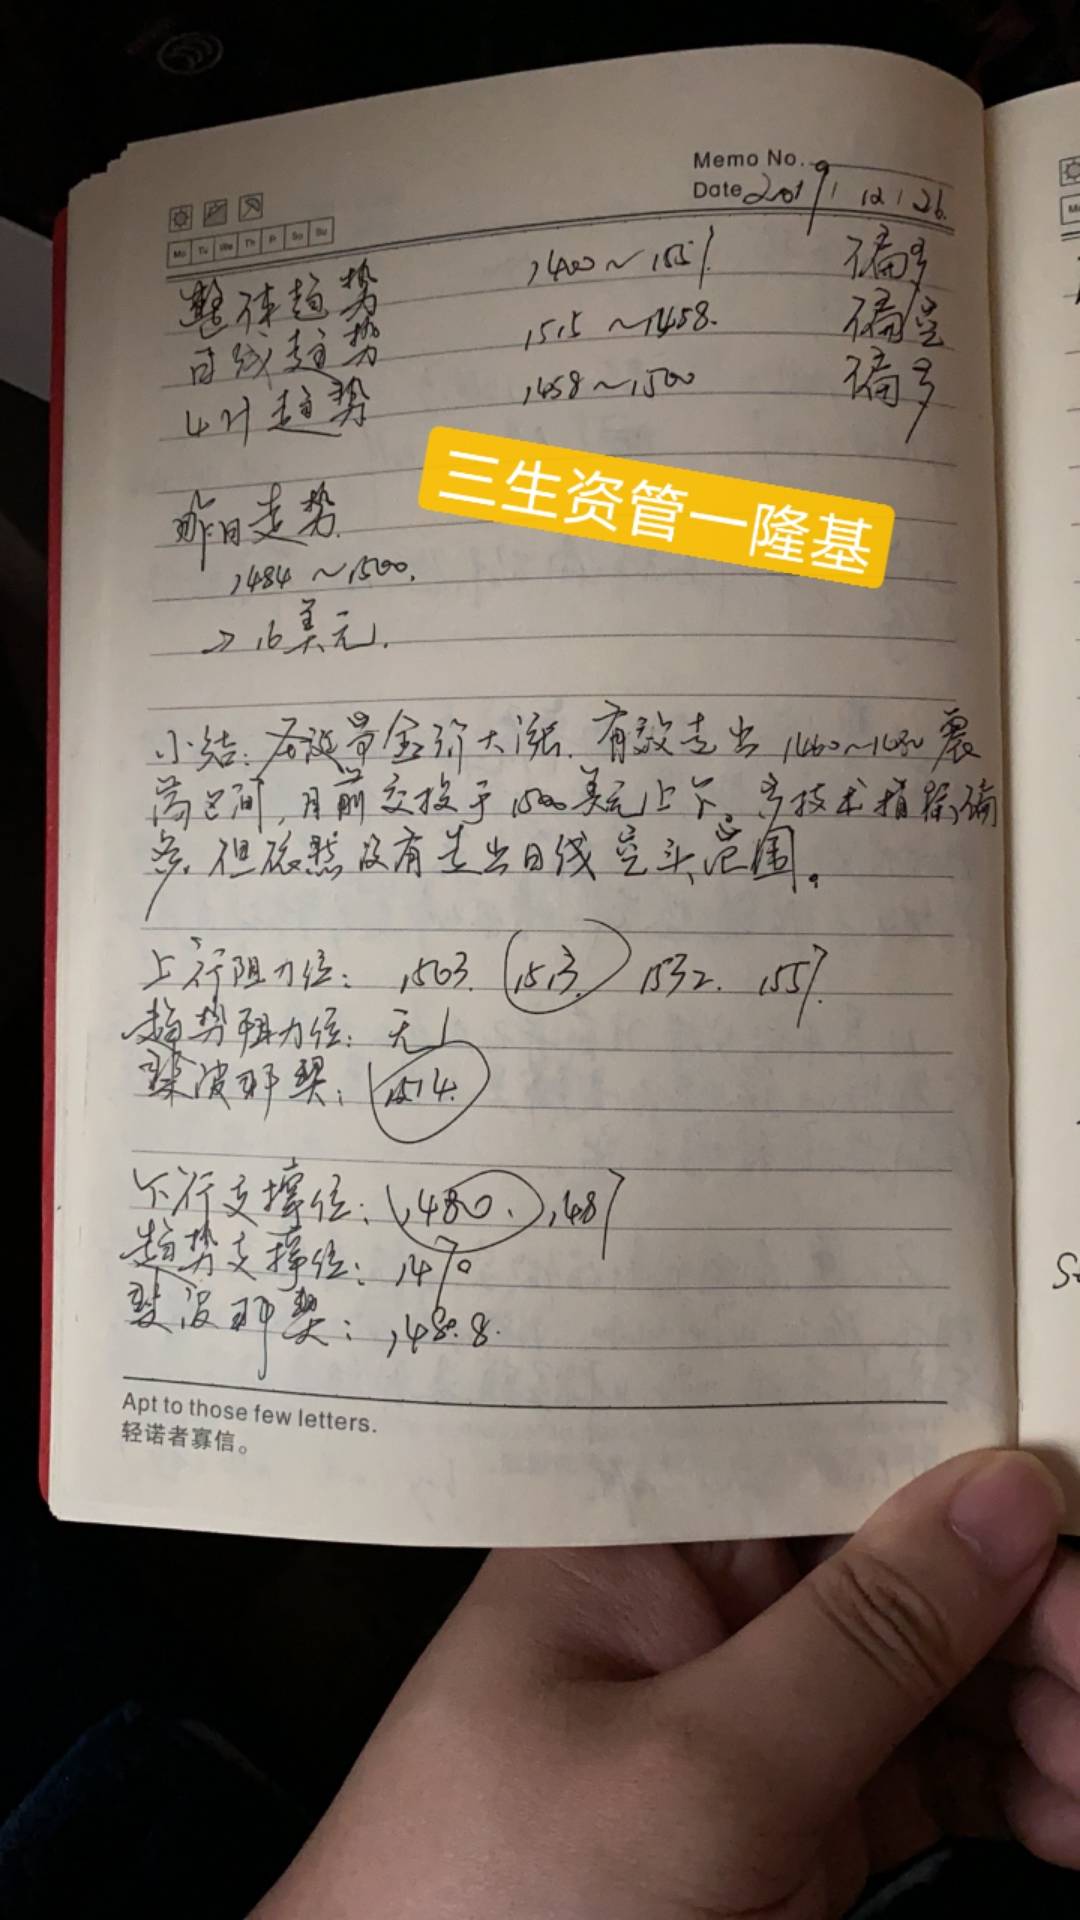 Memo No.
Date 2019 / 12 / 26.
Mo Tu We Th Fr Sa Su
整体趋势 1400～1557 偏多
日线趋势 1515～1458. 偏空
4H趋势 1458～1500 偏多
三生资管一隆基
昨日走势
1484～1500.
→ 16美元.
小结: 圣诞节金价大涨. 有效走出 1460～1480 震
荡区间, 目前交投于 1500美元上下, 多技术指标偏
多. 但依然没有走出日线空头范围。
上行阻力位: 1503. 1513. 1532. 1557.
趋势阻力位: 无
斐波那契: 1514.
下行支撑位: 1480. 1487
趋势支撑位: 1470
斐波那契: 148
Apt to those few letters.
轻诺者寡信。